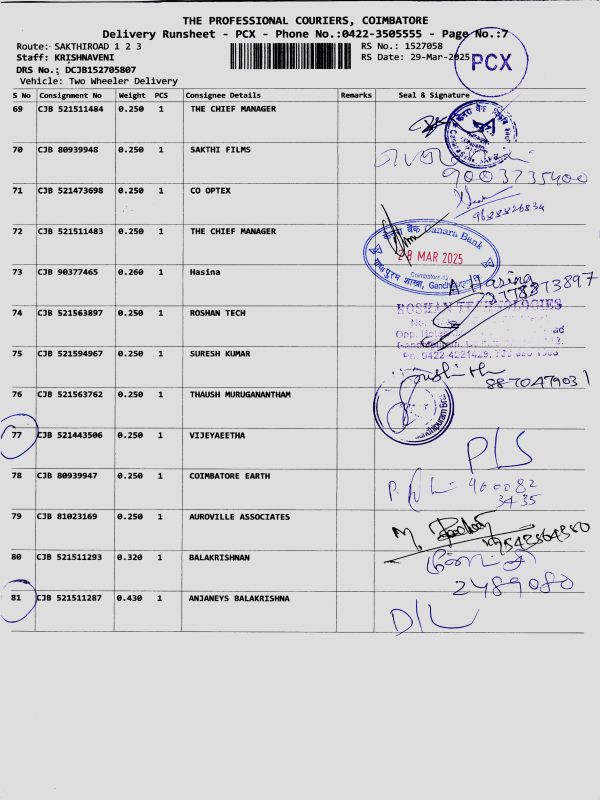 THE PROFESSIONAL COURIERS, COIMBATORE
Delivery Runsheet - PCX - Phone No.:0422-3505555 - Page No.:7
Route: SAKTHIROAD 1 2 3
RS No.: 1527058
Staff: KRISHNAVENI
RS Date: 29-Mar-2025
PCX
DRS No.: DCJB152705807
Vehicle: Two Wheeler Delivery
S No Consignment No Weight PCS Consignee Details Remarks Seal & Signature
69 CJB 521511484 0.250 1 THE CHIEF MANAGER
70 CJB 80939948 0.250 1 SAKTHI FILMS
9003735400
71 CJB 521473698 0.250 1 CO OPTEX
72 CJB 521511483 0.250 1 THE CHIEF MANAGER
केनरा बैंक Canara Bank
28 MAR 2025
73 CJB 90377465 0.260 1 Hasina
A Hasina
74 CJB 521563897 0.250 1 ROSHAN TECH
ROSHAN TECHNOLOGIES
75 CJB 521594967 0.250 1 SURESH KUMAR
8870479031
76 CJB 521563762 0.250 1 THAUSH MURUGANANTHAM
77 CJB 521443506 0.250 1 VIJEYAEETHA
P/S
78 CJB 80939947 0.250 1 COIMBATORE EARTH
960082
3435
79 CJB 81023169 0.250 1 AUROVILLE ASSOCIATES
80 CJB 521511293 0.320 1 BALAKRISHNAN
2489080
81 CJB 521511287 0.430 1 ANJANEYS BALAKRISHNA
D/L